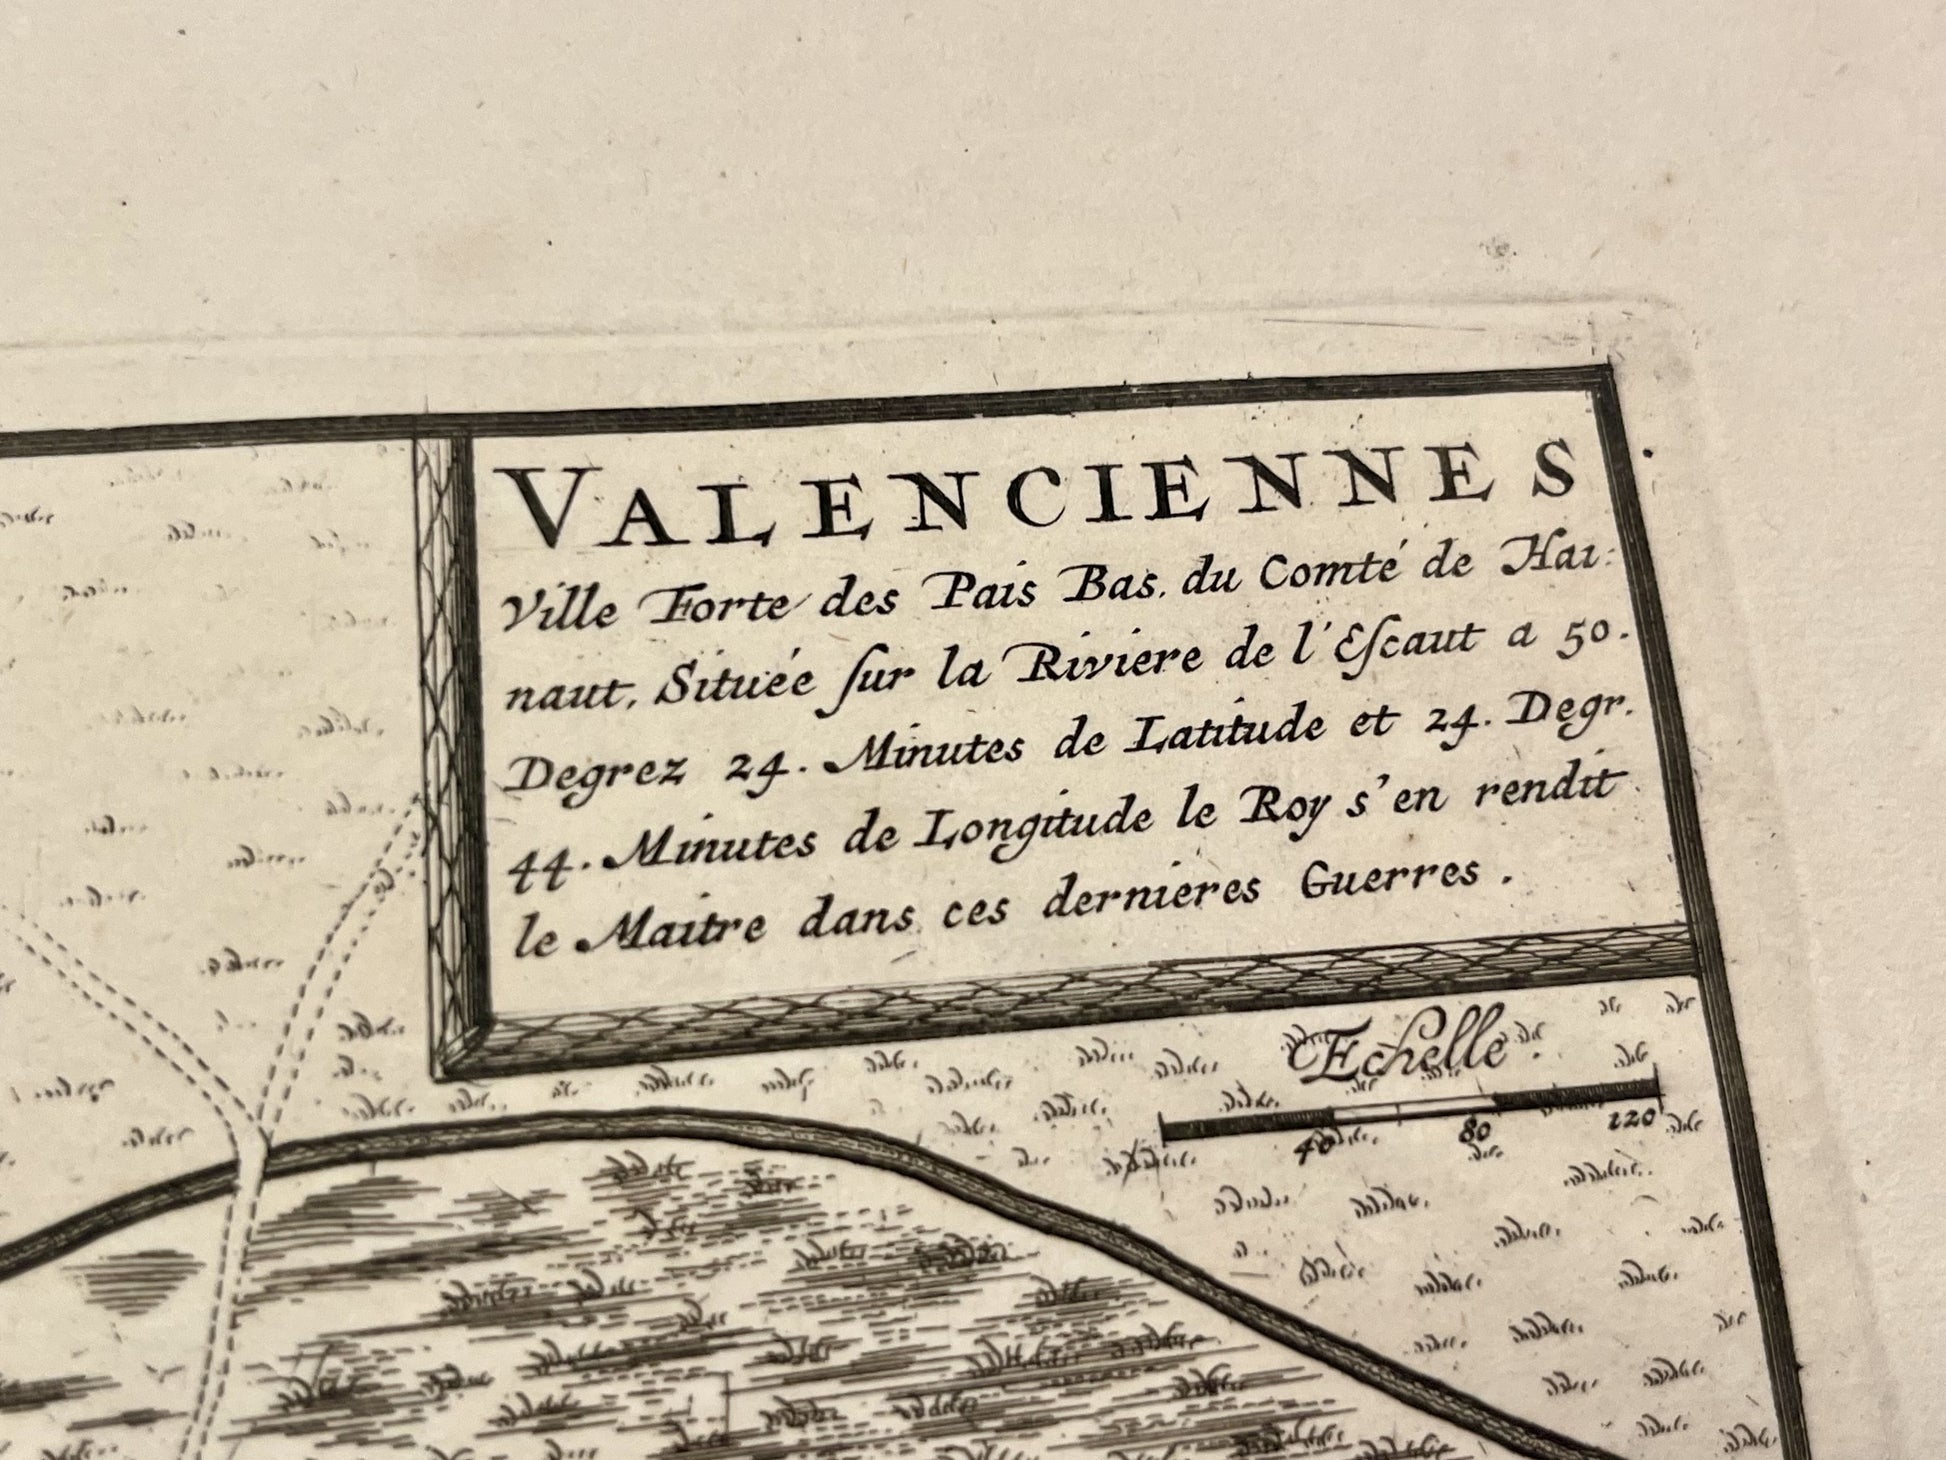 VALENCIENNES
Ville Forte des Pais Bas. du Comté de Hai:
naut. Située ſur la Riviere de l'Eſcaut a 50.
Degrez 24. Minutes de Latitude et 24. Degr.
44. Minutes de Longitude le Roy s'en rendit
le Maitre dans ces dernieres Guerres.
Echelle.
40 80 120